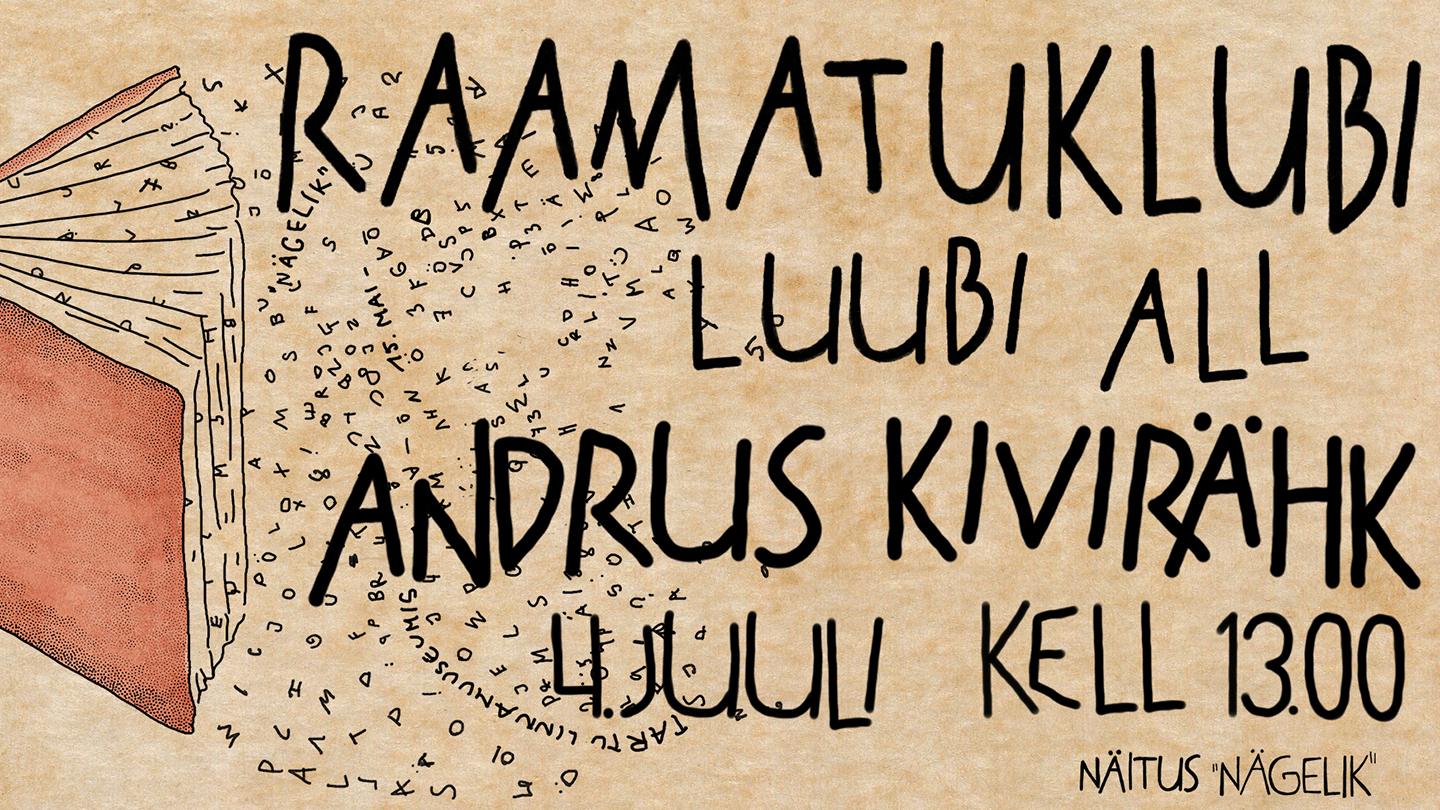 RAAMATUKLUBI
LUUBI ALL
ANDRUS KIVIRÄHK
4. JUULI KELL 13.00
NÄITUS "NÄGELIK"
"NÄGELIK"
15. MAI -
TARTU LINNAMUUSEUMIS